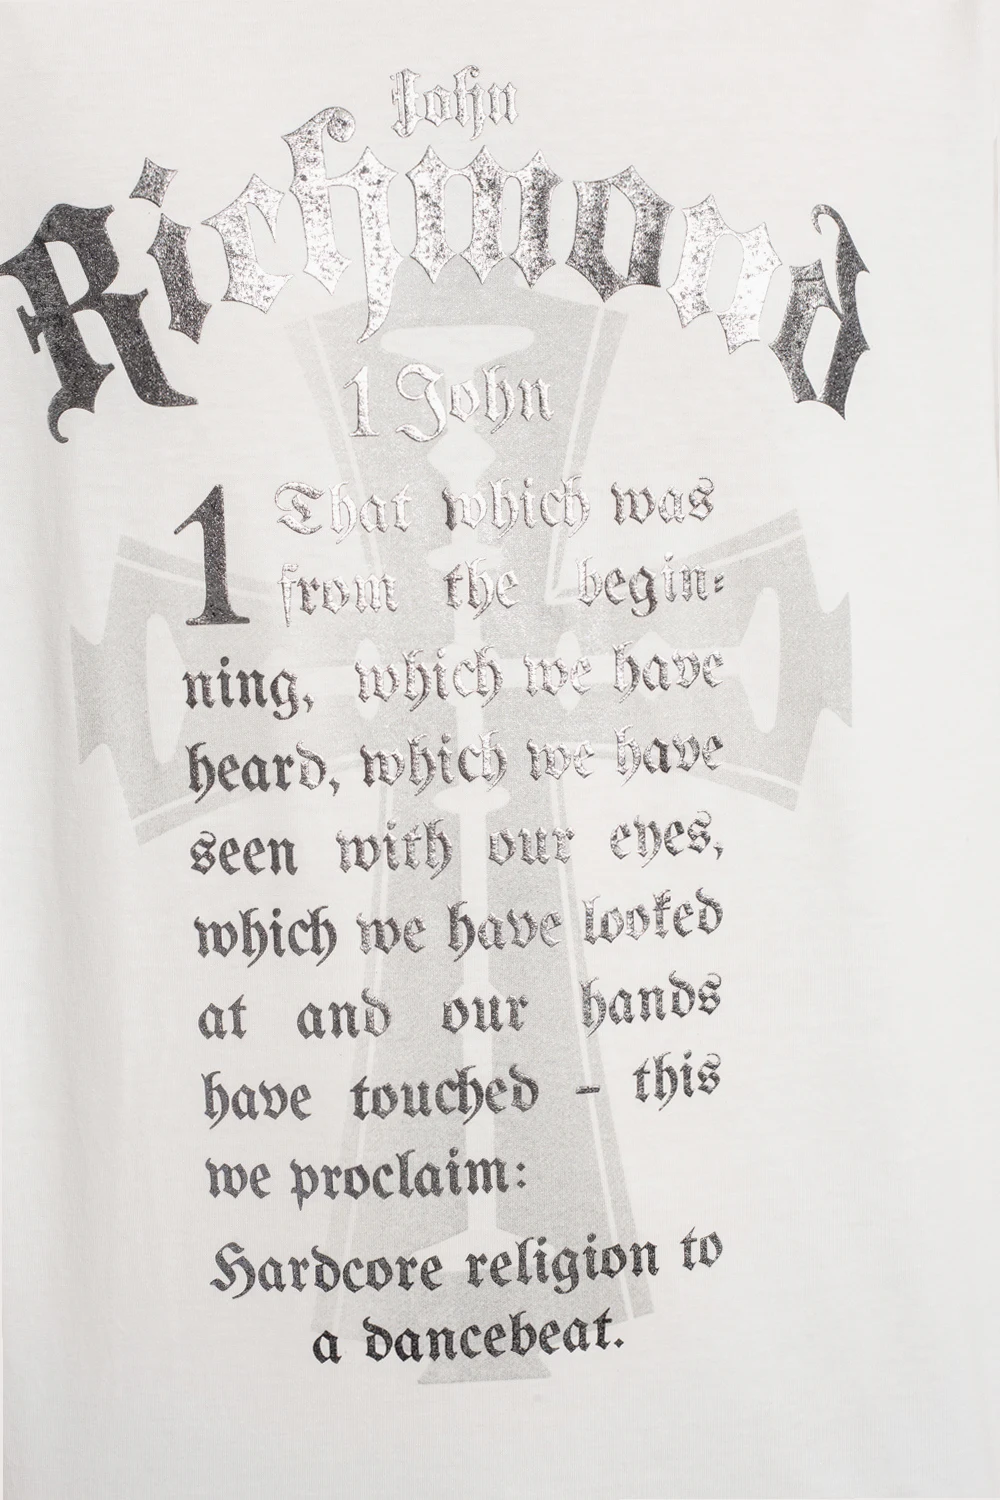 John
Richmond
1 John
1 That which was
from the begin:
ning, which we have
heard, which we have
seen with our eyes,
which we have looked
at and our hands
have touched - this
we proclaim:
Hardcore religion to
a dancebeat.